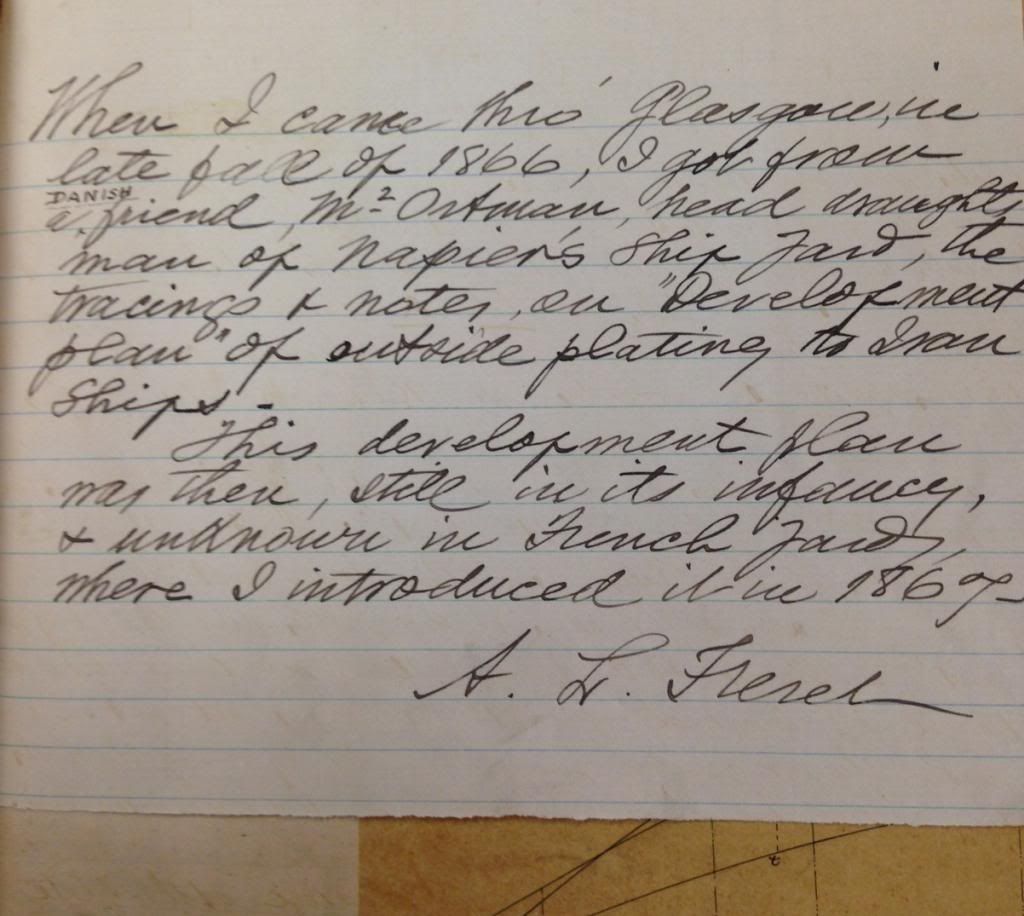 When I came thro' Glasgow, in
late fall of 1866, I got from
DANISH
a friend, Mr Ortman, head draughts
man of Napier's Ship Yard, the
tracings & notes, on "Development
plan" of outside plating to Iron
Ships.-
This development plan
was then, still in its infancy,
& unknown in French Yards,
where I introduced it in 1867-
A. L.